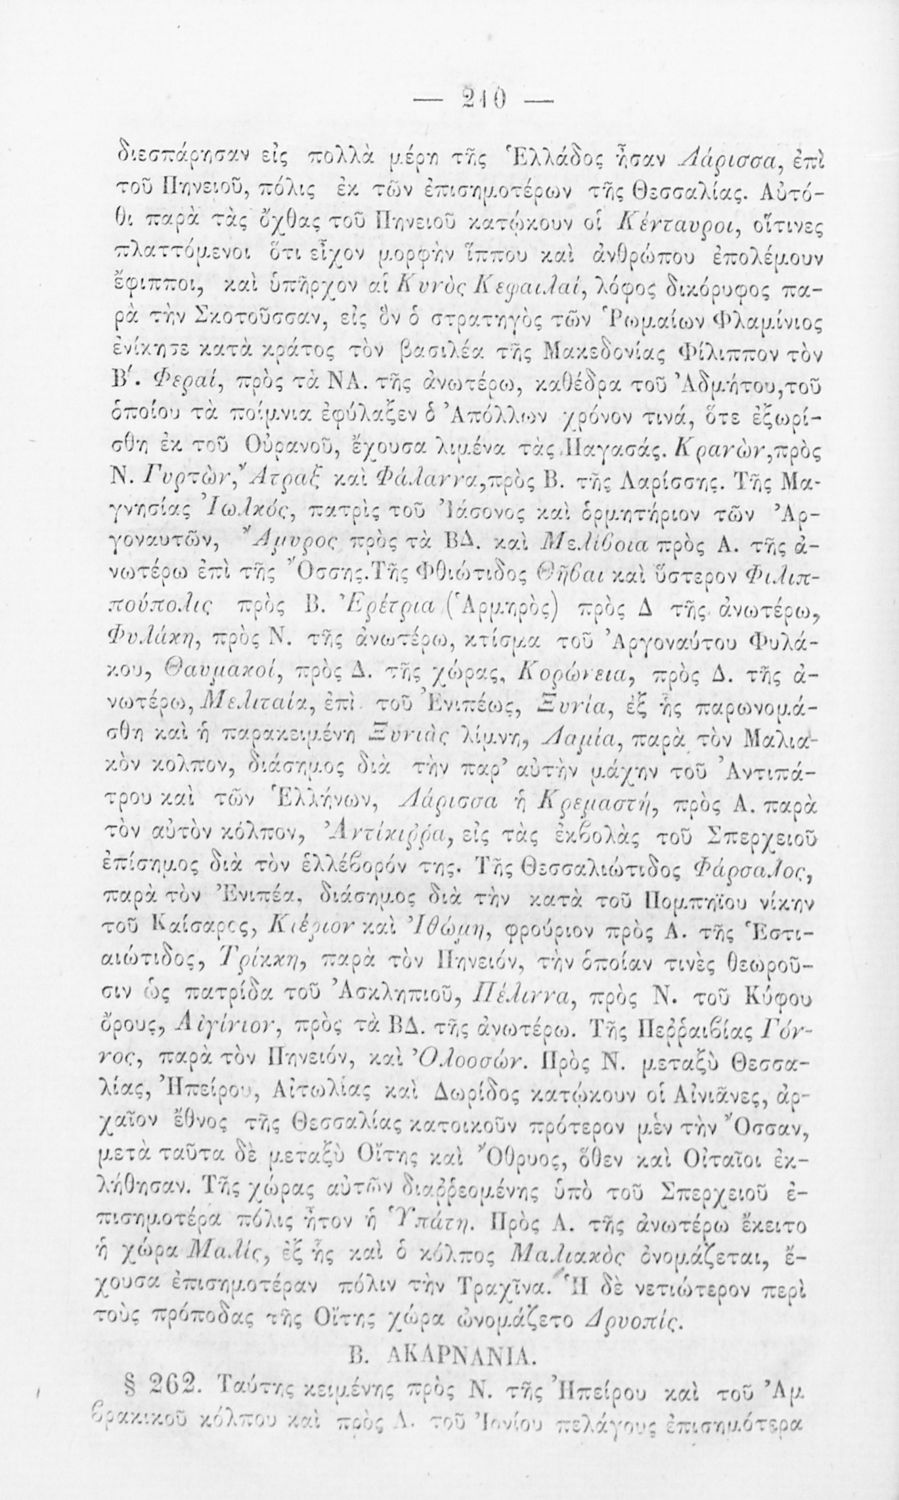 — 210 —
διεσπάρησαν εἰς πολλὰ μέρη τῆς Ἑλλάδος ἦσαν Λάρισσα, ἐπὶ
τοῦ Πηνειοῦ, πόλις ἐκ τῶν ἐπισημοτέρων τῆς Θεσσαλίας. Αὐτό-
θι παρὰ τὰς ὄχθας τοῦ Πηνειοῦ κατῴκουν οἱ Κένταυροι, οἵτινες
πλαττόμενοι ὅτι εἶχον μορφὴν ἵππου καὶ ἀνθρώπου ἐπολέμουν
ἔφιπποι, καὶ ὑπῆρχον αἱ Κυνὸς Κεφαιλαί, λόφος δικόρυφος πα-
ρὰ τὴν Σκοτοῦσσαν, εἰς ὃν ὁ στρατηγὸς τῶν Ῥωμαίων Φλαμίνιος
ἐνίκησε κατὰ κράτος τὸν βασιλέα τῆς Μακεδονίας Φίλιππον τὸν
Β´. Φεραί, πρὸς τὰ ΝΑ. τῆς ἀνωτέρω, καθέδρα τοῦ Ἀδμήτου,τοῦ
ὁποίου τὰ ποίμνια ἐφύλαξεν ὁ Ἀπόλλων χρόνον τινά, ὅτε ἐξωρί-
σθη ἐκ τοῦ Οὐρανοῦ, ἔχουσα λιμένα τὰς Παγασάς. Κρανὼν,πρὸς
Ν. Γυρτὼν, Ἄτραξ καὶ Φάλαννα,πρὸς Β. τῆς Λαρίσσης. Τῆς Μα-
γνησίας Ἰωλκός, πατρὶς τοῦ Ἰάσονος καὶ ὁρμητήριον τῶν Ἀρ-
γοναυτῶν, Ἄμυρος πρὸς τὰ ΒΔ. καὶ Μελίβοια πρὸς Α. τῆς ἀ-
νωτέρω ἐπὶ τῆς Ὄσσης.Τῆς Φθιώτιδος Θῆβαι καὶ ὕστερον Φιλιπ-
πούπολις πρὸς Β. Ἐρέτρια (Ἁρμηρὸς) πρὸς Δ τῆς ἀνωτέρω,
Φυλάκη, πρὸς Ν. τῆς ἀνωτέρω, κτίσμα τοῦ Ἀργοναύτου Φυλά-
κου, Θαυμακοί, πρὸς Δ. τῆς χώρας, Κορώνεια, πρὸς Δ. τῆς ἀ-
νωτέρω, Μελιταία, ἐπὶ τοῦ Ἐνιπέως, Ξυνία, ἐξ ἧς παρωνομά-
σθη καὶ ἡ παρακειμένη Ξυνιὰς λίμνη, Λαμία, παρὰ τὸν Μαλια-
κὸν κολπον, διάσημος διὰ τὴν παρ’ αὐτὴν μάχην τοῦ Ἀντιπά-
τρου καὶ τῶν Ἑλλήνων, Λάρισσα ἡ Κρεμαστή, πρὸς Α. παρὰ
τὸν αὐτὸν κόλπον, Ἀντίκιῤῥα, εἰς τὰς ἐκβολὰς τοῦ Σπερχειοῦ
ἐπίσημος διὰ τὸν ἑλλέβορόν της. Τῆς Θεσσαλιώτιδος Φάρσαλος,
παρὰ τὸν Ἐνιπέα, διάσημος διὰ τὴν κατὰ τοῦ Πομπηΐου νίκην
τοῦ Καίσαρος, Κιέριον καὶ Ἰθώμη, φρούριον πρὸς Α. τῆς Ἑστι-
αιώτιδος, Τρίκκη, παρὰ τὸν Πηνειόν, τὴν ὁποίαν τινὲς θεωροῦ-
σιν ὡς πατρίδα τοῦ Ἀσκληπιοῦ, Πέλιννα, πρὸς Ν. τοῦ Κύφου
ὄρους, Αἰγίνιον, πρὸς τὰ ΒΔ. τῆς ἀνωτέρω. Τῆς Πεῤῥαιβίας Γόν-
νος, παρὰ τὸν Πηνειόν, καὶ Ὀλοοσών. Πρὸς Ν. μεταξὺ Θεσσα-
λίας, Ἠπείρου, Αἰτωλίας καὶ Δωρίδος κατῴκουν οἱ Αἰνιᾶνες, ἀρ-
χαῖον ἔθνος τῆς Θεσσαλίας κατοικοῦν πρότερον μὲν τὴν Ὄσσαν,
μετὰ ταῦτα δὲ μεταξὺ Οἴτης καὶ Ὄθρυος, ὅθεν καὶ Οἰταῖοι ἐκ-
λήθησαν. Τῆς χώρας αὐτῶν διαῤῥεομένης ὑπὸ τοῦ Σπερχειοῦ ἐ-
πισημοτέρα πόλις ἦτον ἡ Ὑπάτη. Πρὸς Α. τῆς ἀνωτέρω ἔκειτο
ἡ χώρα Μαλίς, ἐξ ἧς καὶ ὁ κόλπος Μαλιακὸς ὀνομάζεται, ἔ-
χουσα ἐπισημοτέραν πόλιν τὴν Τραχῖνα. Ἡ δὲ νετιώτερον περὶ
τοὺς πρόποδας τῆς Οἴτης χώρα ὠνομάζετο Δρυοπίς.
Β. ΑΚΑΡΝΑΝΙΑ.
§ 262. Ταύτης κειμένης πρὸς Ν. τῆς Ἠπείρου καὶ τοῦ Ἀμ
βρακικοῦ κόλπου καὶ πρὸς Α. τοῦ Ἰονίου πελάγους ἐπισημότερα